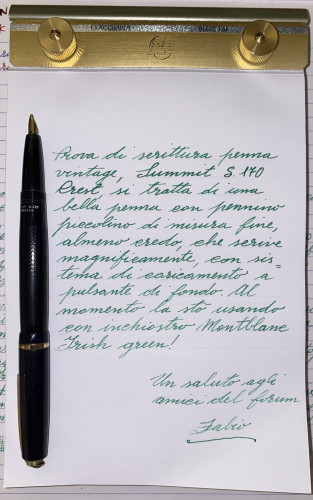 EXACOMPTA
Prova di scrittura penna
vintage, Summit S.170
Crest, si tratta di una
bella penna con pennino
piccolino di misura fine,
almeno credo, che scrive
magnificamente, con sis=
tema di caricamento a
pulsante di fondo. Al
momento la sto usando
con inchiostro Montblanc
Irish green!
Un saluto agli
amici del forum
Fabio